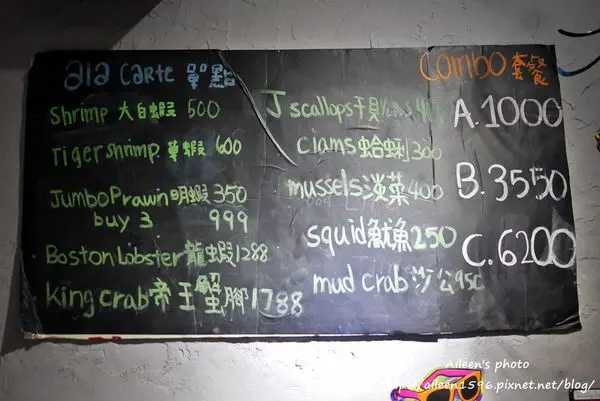 ala carte 單點
Shrimp 大白蝦 500
Tiger shrimp 草蝦 600
Jumbo Prawn 明蝦 350
buy 3 999
Boston Lobster 龍蝦 1288
king crab 帝王蟹腳 1788
J scallops 干貝
clams 蛤蜊 300
mussels 淡菜 400
squid 魷魚 250
mud crab 沙公 950
Combo 套餐
A. 1000
B. 3550
C. 6200
Aileen's photo
aileen1596.pixnet.net/blog/